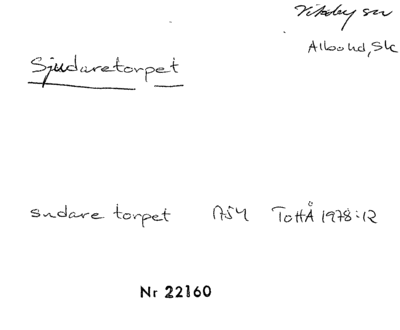 Vitaby sn
Albo hd, Sk
Sjudaretorpet
sudare torpet 1754 ToHÅ 1978:12
Nr 22160